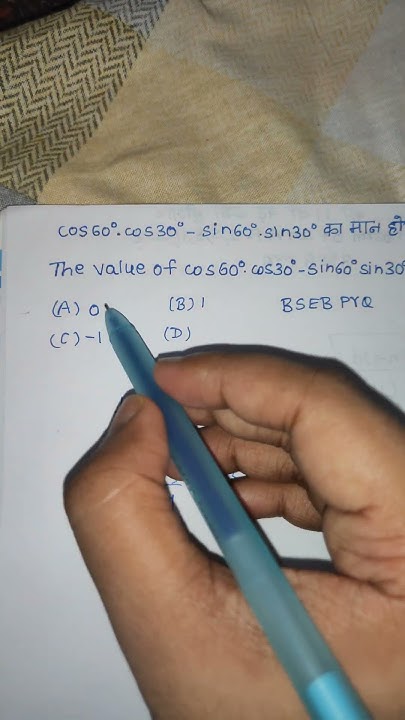 cos60°.cos30° - sin60°.sin30° का मान हो
The value of cos60°.cos30° - sin60° sin30°
(A) 0 (B) 1 BSEB PYQ
(C) -1 (D)